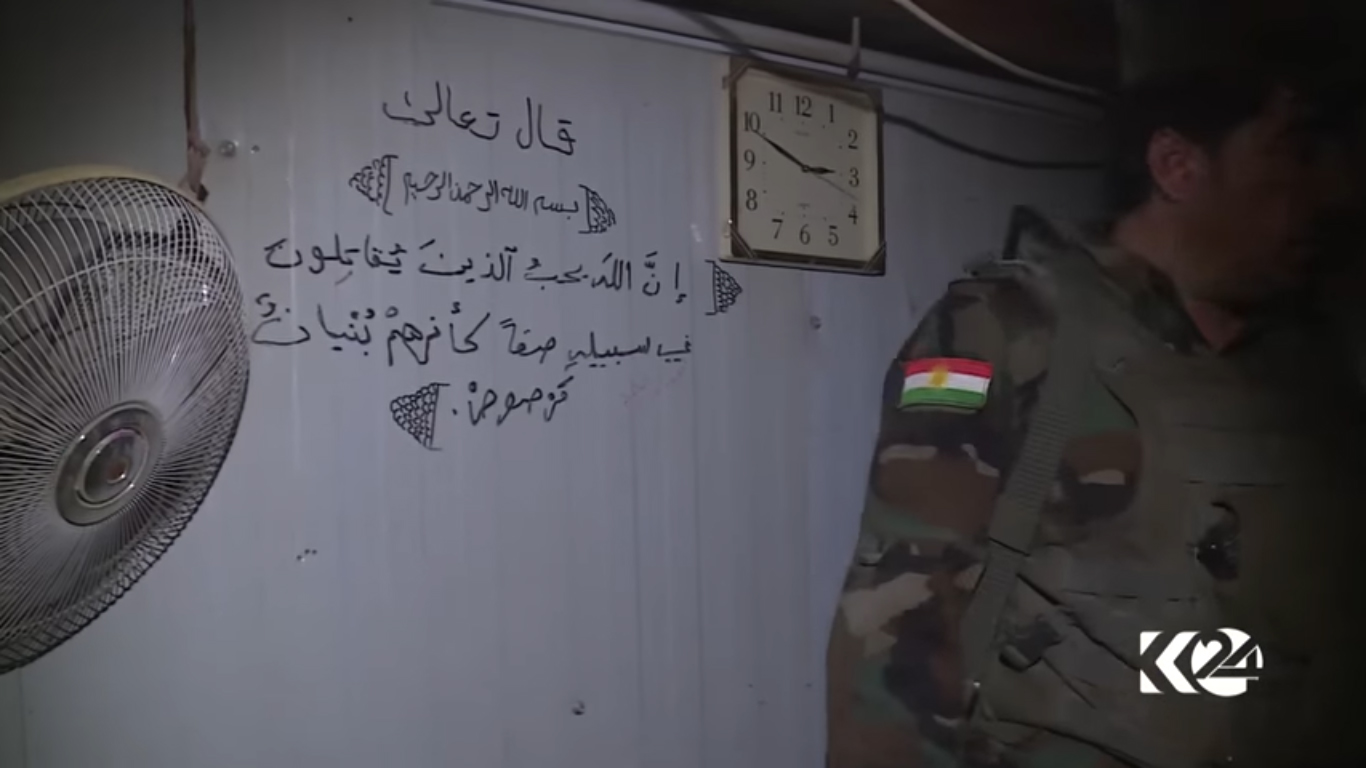 قال تعالى
بسم الله الرحمن الرحيم
إنَّ اللهَ يحبُ ٱلذينَ يُقاتِلون
في سبيلهِ صفاً كأنهمْ بُنْيانٌ
مَرْصوصْ.
11 12 1
10 2
9 3
8 4
7 6 5
K24